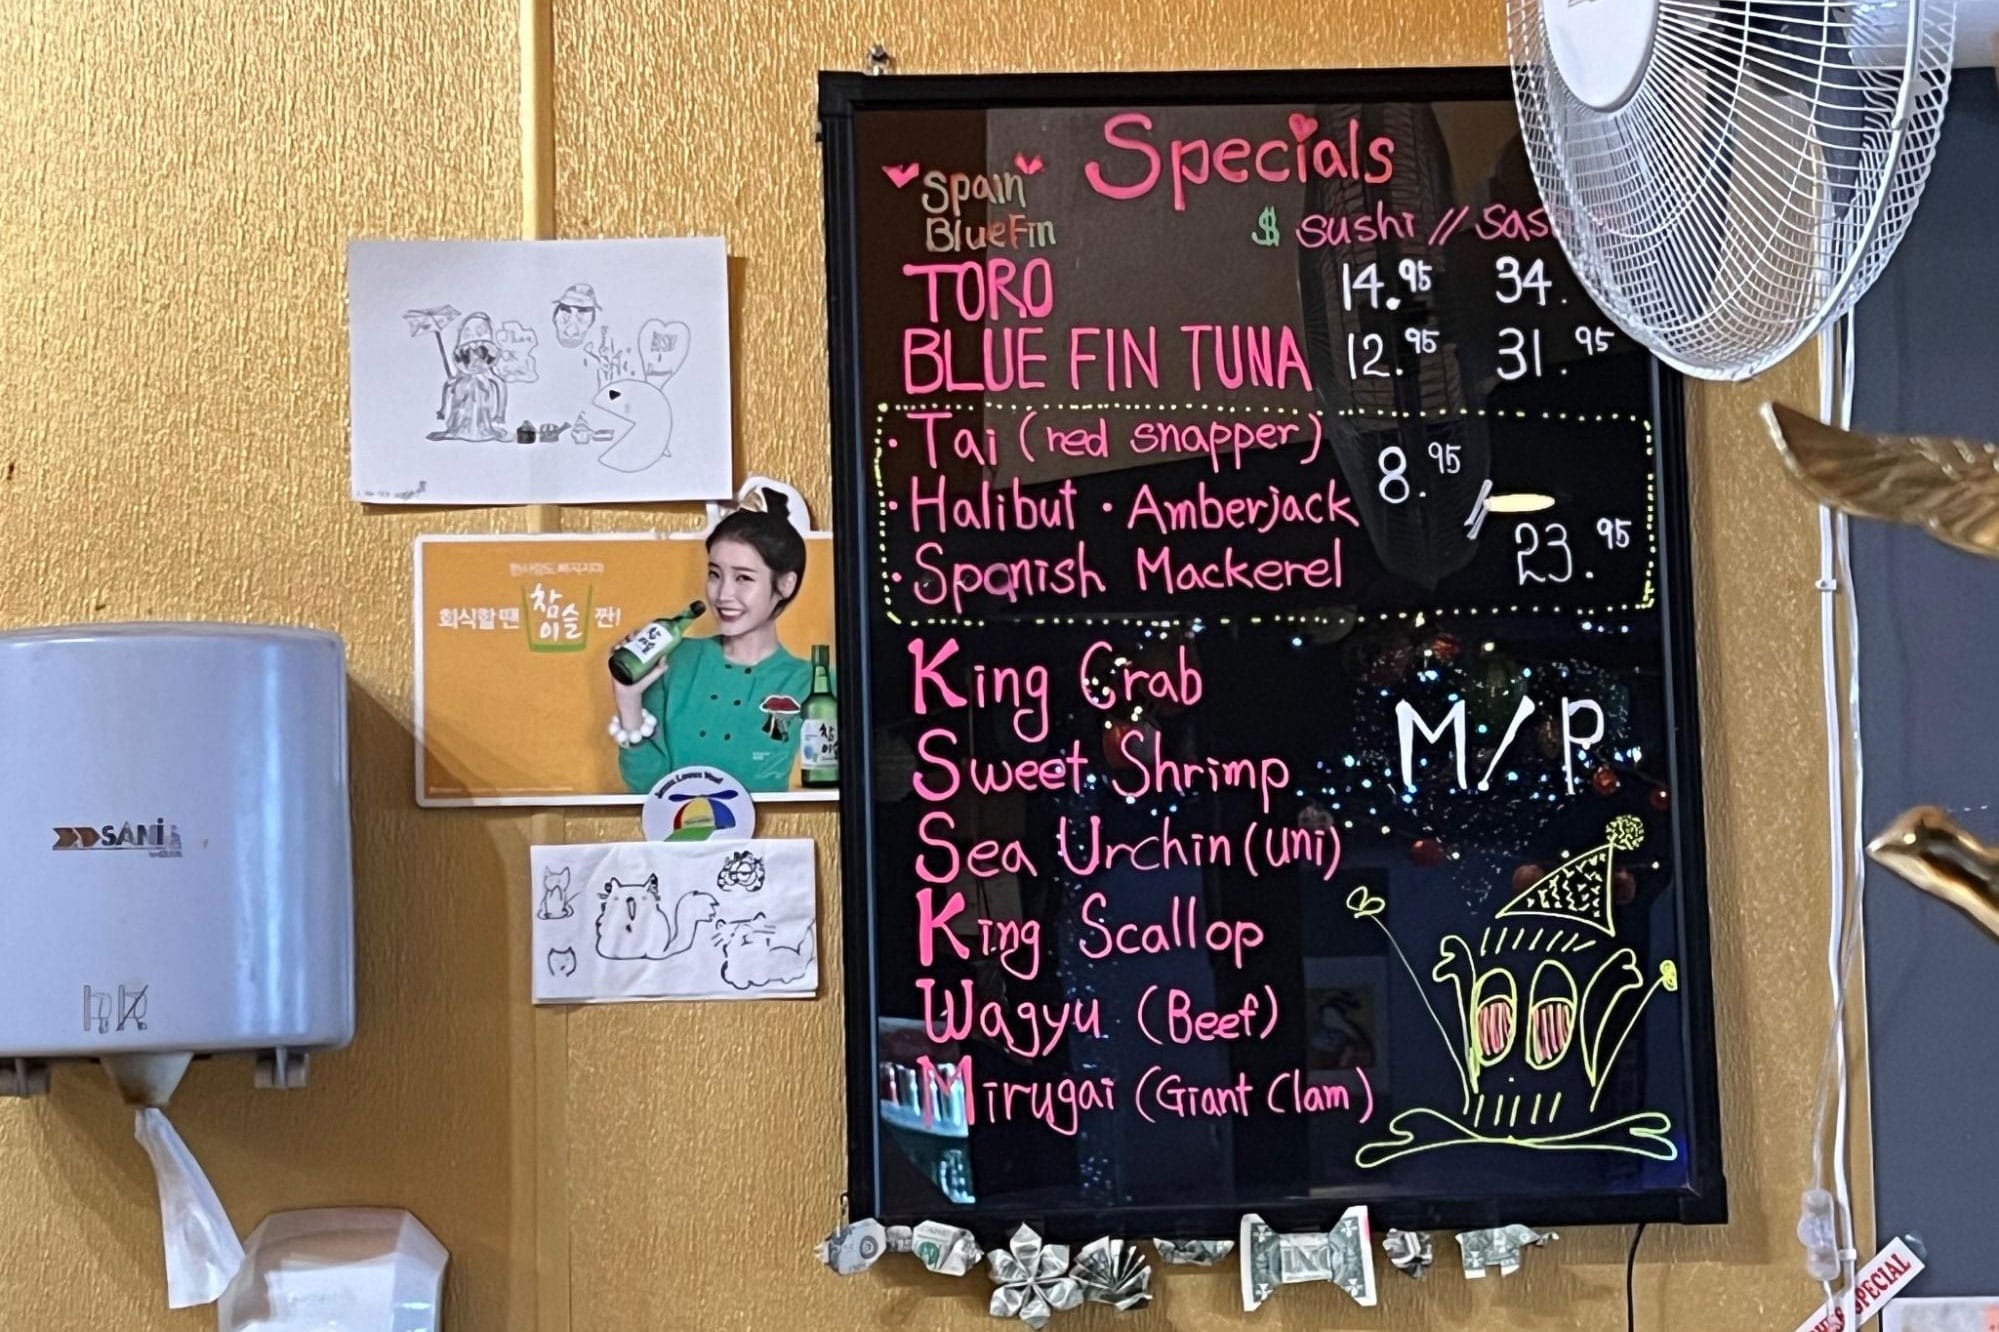 Specials
"Spain"
BlueFin
$ sushi // sas
TORO 14.95 34.
BLUE FIN TUNA 12.95 31.95
· Tai (red snapper) 8.95
· Halibut · Amberjack
· Spanish Mackerel 23.95
King Crab
Sweet Shrimp M/P
Sea Urchin (uni)
King Scallop
Wagyu (Beef)
Mirugai (Giant Clam)
회식할 땐 참이슬 짠!
참이슬
Loves You!
SANi
SPECIAL